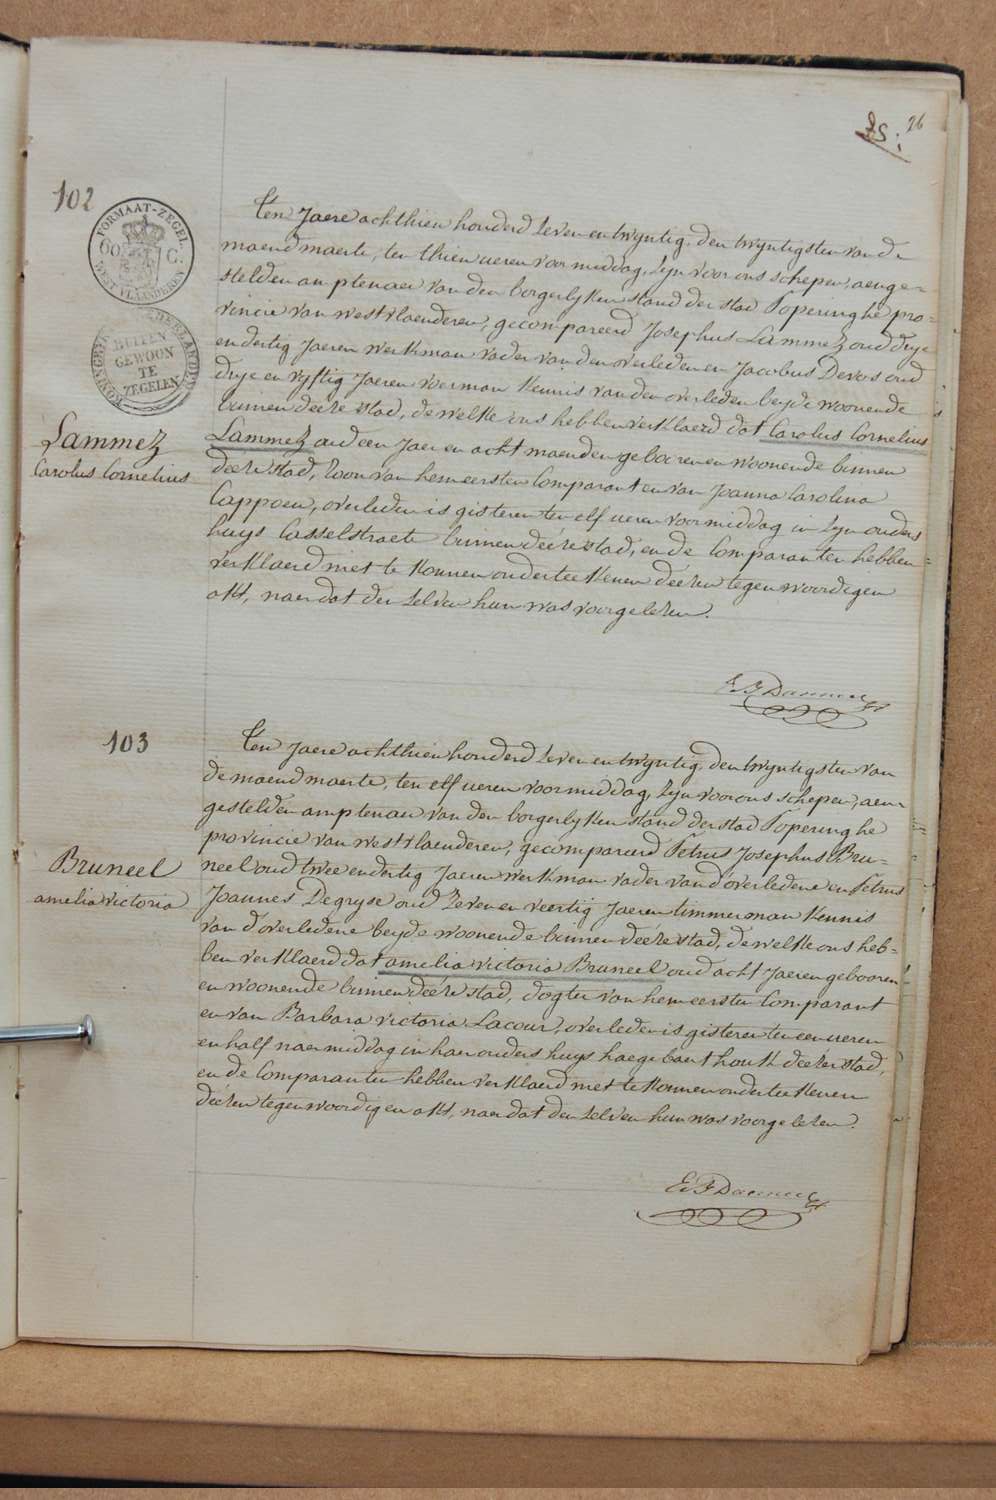 25. 26
102
FORMAAT-ZEGEL.
60 C.
WEST VLAANDEREN
KONINGRYK DER NEDERLANDEN
BUITEN
GEWOON
TE
ZEGELEN
Lammez
Carolus Cornelius
Ten Jaere achthien honderd zeven en twyntig, den twyntigsten van de
maend maerte, ten thien ueren voormiddag, zyn voor ons schepen, aenge-
stelden amptenaer van den borgerlyken stand der stad Poperinghe pro-
vincie van westvlaenderen, gecompareerd Josephus Lammez oud drye
en dertig Jaeren werkman vader van den overledenen en Jacobus Devos oud
drye en vyftig Jaeren voerman kennis van den overleden beyde woonende
binnen deeze stad, de welke ons hebben verklaerd dat Carolus Cornelius
Lammez oud een Jaer en acht maenden gebooren en woonende binnen
deeze stad, zoon van hem eersten Comparant en van Joanna Carolina
Cappoen, overleden is gisteren ten elf ueren voormiddag in zyn ouders
huys Casselstraete binnen deeze stad, en de Comparanten hebben
verklaerd niet te konnen onderteekenen deezen tegenwoordigen
akt, naer dat den zelven hun was voorgelezen.
103
Bruneel
amelia victoria
Ten Jaere achthien honderd zeven en twyntig, den twyntigsten van
de maend maerte, ten elf ueren voormiddag, zyn voor ons schepen, aen-
gestelden amptenaer van den borgerlyken stand der stad Poperinghe
provincie van westvlaenderen, gecompareerd Petrus Josephus Bru-
neel oud twee en dertig Jaeren werkman vader van d'overledene en Petrus
Joannes Degryse oud zeven en veertig Jaeren timmerman kennis
van d'overledene beyde woonende binnen deeze stad, de welke ons heb-
ben verklaerd dat amelia victoria Bruneel oud acht Jaeren gebooren
en woonende binnen deeze stad, dogter van hem eersten Comparant
en van Barbara victoria Lacour, overleden is gisteren ten een ueren
en half naermiddag in haer ouders huys haegebaert houk deezer stad,
en de Comparanten hebben verklaerd niet te konnen onderteekenen
deezen tegenwoordigen akt, naer dat den zelven hun was voorgelezen.